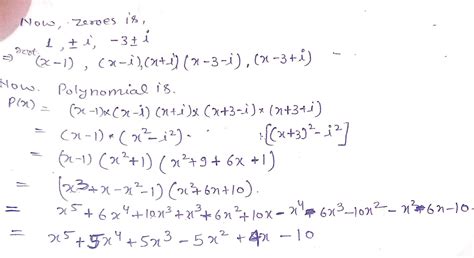 Now, zeroes is,
1, ± i, -3 ± i
⇒ (x-1), (x-i), (x+i) (x-3-i), (x-3+i)
Now. Polynomial is.
P(x) = (x-1)×(x-i) (x+i)× (x+3-i)× (x+3+i)
= (x-1) * (x²-i²). [(x+3)²-i²]
= (x-1) (x²+1) (x²+9+6x+1)
= (x³+x-x²-1) (x²+6x+10).
= x⁵+6x⁴+10x³+x³+6x²+10x-x⁴-6x³-10x²-x²-6x-10.
= x⁵+5x⁴+5x³-5x²+4x-10